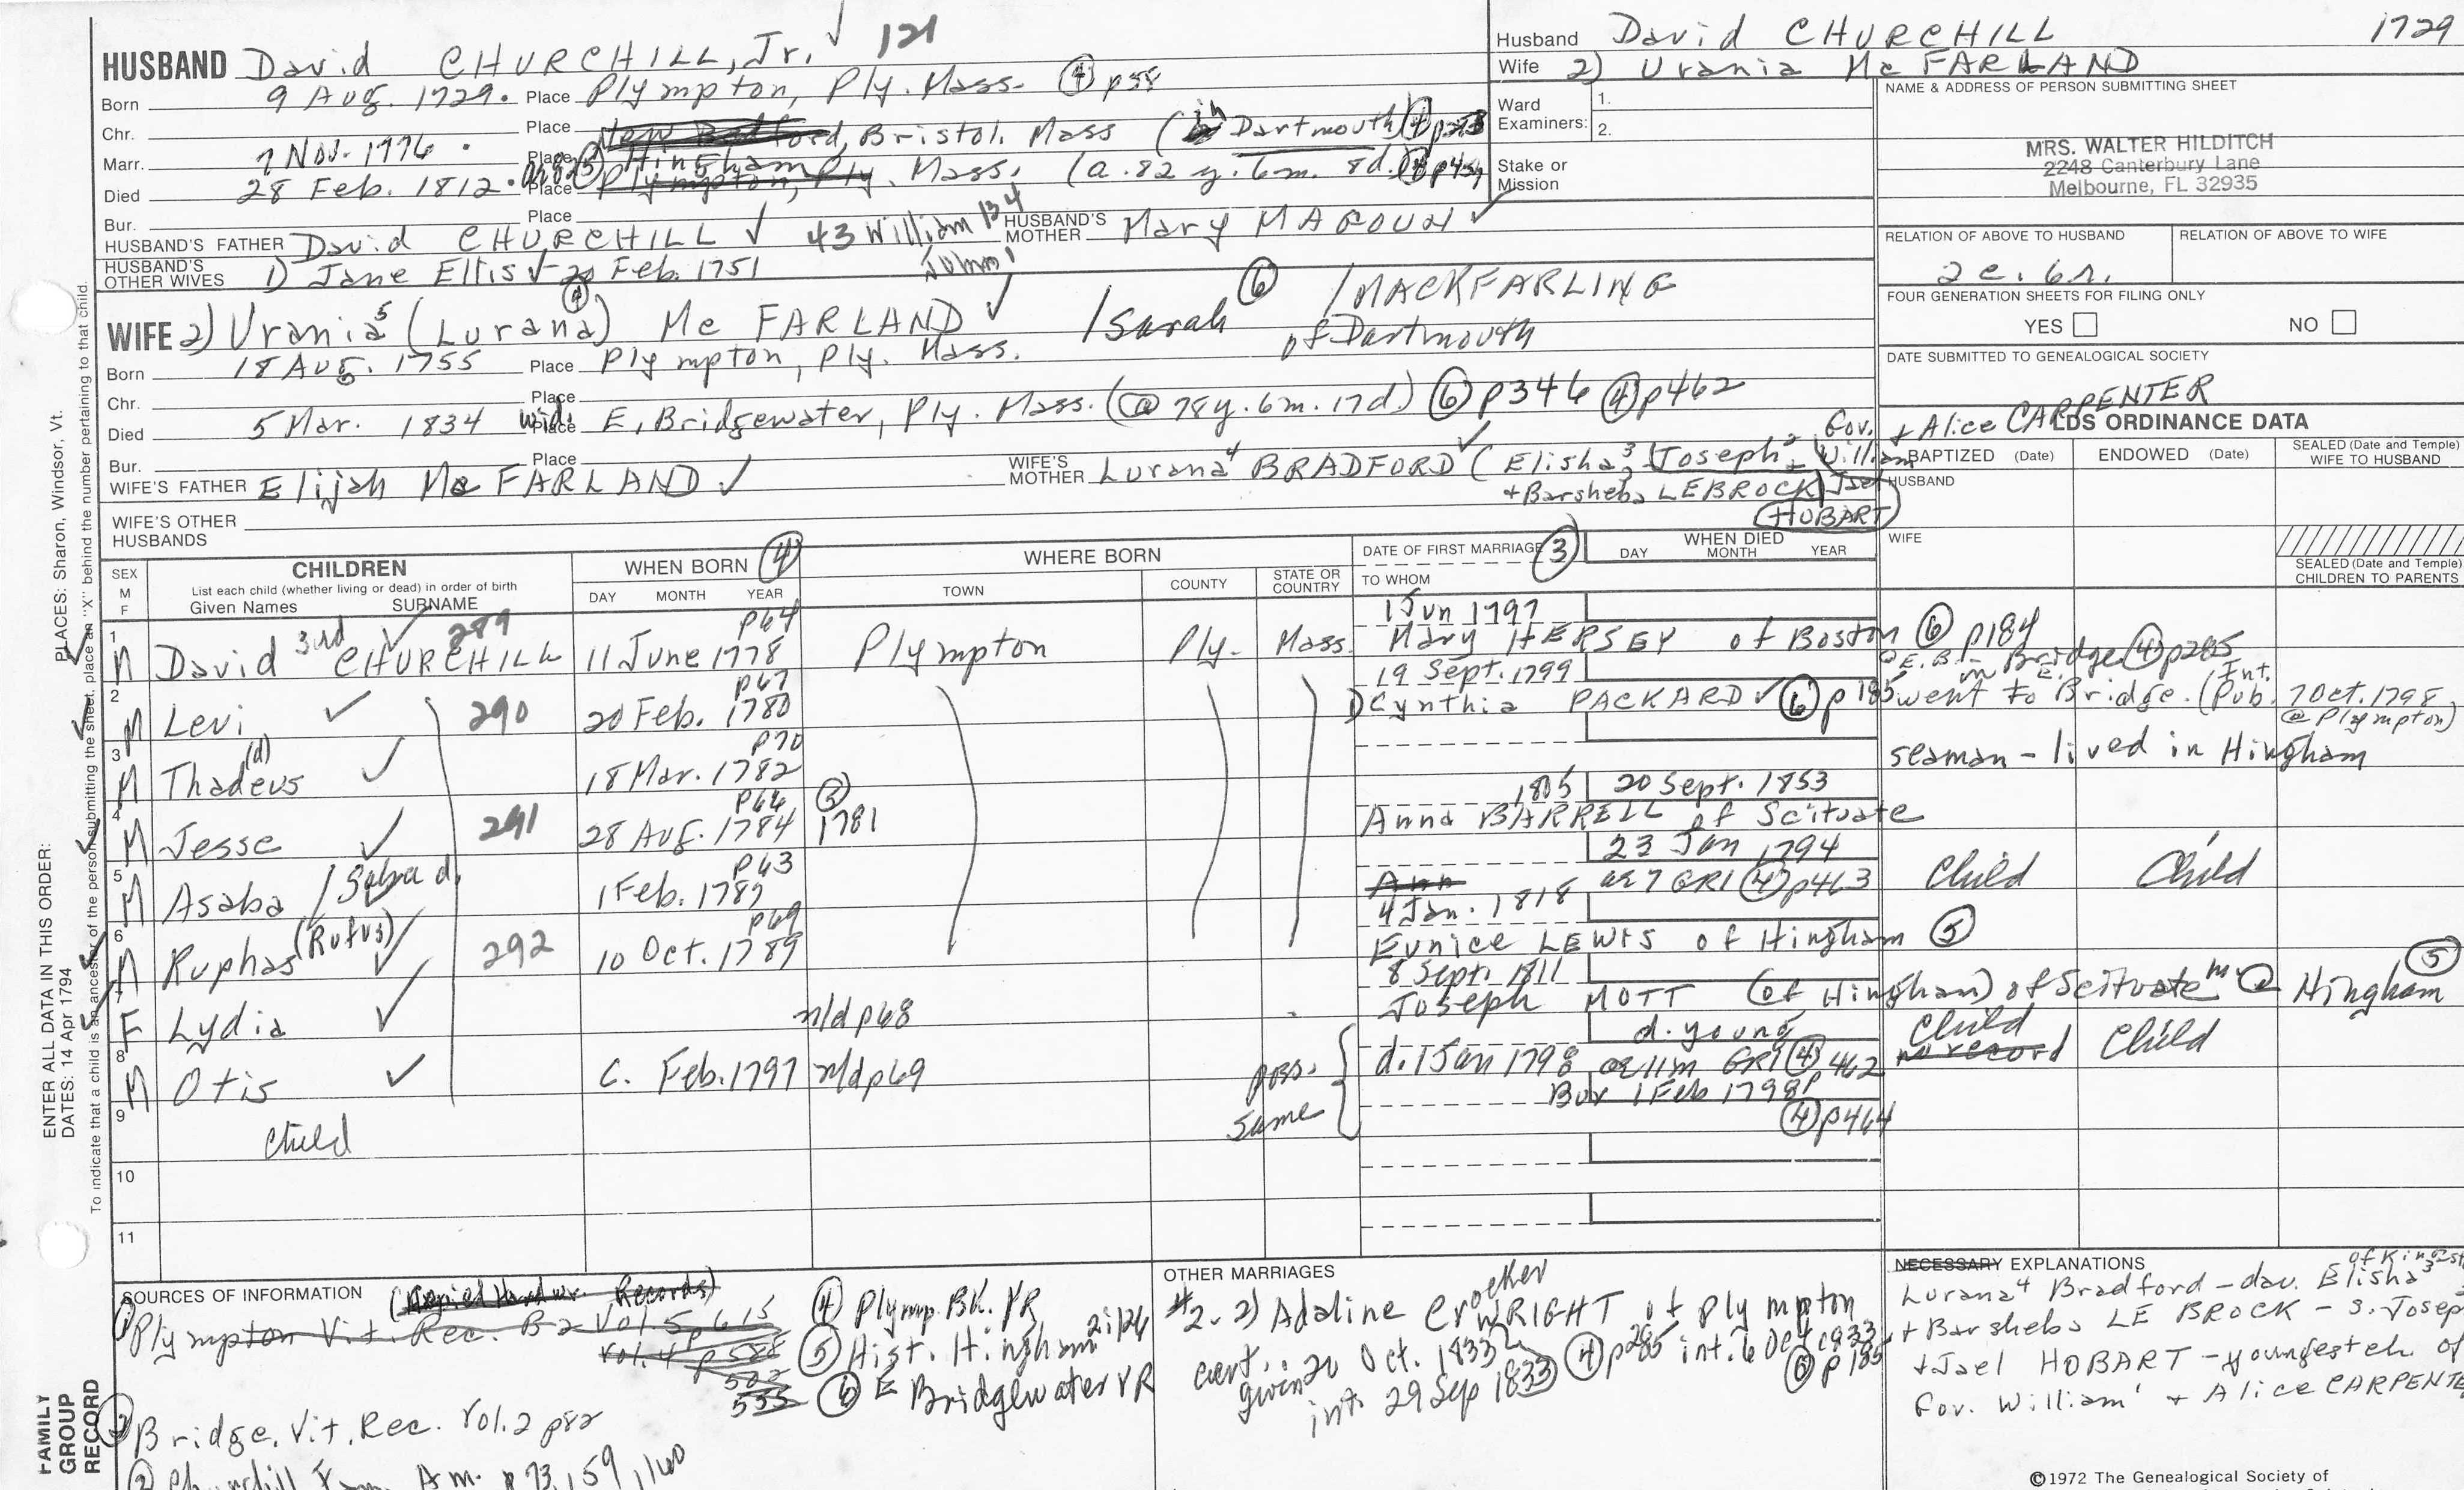 HUSBAND David CHURCHILL, Jr. ✓ 121
Born 9 Aug. 1729. Place Plympton, Ply. Mass. ④ p58
Chr. Place
Marr. 7 Nov. 1776. Place New Bedford, Bristol, Mass (in Dartmouth
Died 28 Feb. 1812. Place Hingham Plympton, Ply. Mass. (a. 82 y. 6m. 8d.
Bur. Place
HUSBAND'S FATHER David CHURCHILL ✓ 43 William 134 John HUSBAND'S MOTHER Mary MAGOUN ✓
HUSBAND'S OTHER WIVES 1) Jane Ellis ✓ Feb. 1751
Husband David CHURCHILL 1729
Wife 2) Urania Mc FARLAND
Ward Examiners: 1.
2.
Stake or Mission
NAME & ADDRESS OF PERSON SUBMITTING SHEET
MRS. WALTER HILDITCH
2248 Canterbury Lane
Melbourne, FL 32935
RELATION OF ABOVE TO HUSBAND RELATION OF ABOVE TO WIFE
2c. 6r.
FOUR GENERATION SHEETS FOR FILING ONLY
YES NO
DATE SUBMITTED TO GENEALOGICAL SOCIETY
WIFE 2) Urania⁵ (Lurana) ④ Mc FARLAND ✓ /Sarah ⑥ /MACKFARLING
of Dartmouth
Born 18 Aug. 1755 Place Plympton, Ply. Mass.
Chr. Place
Died 5 Mar. 1834 wid. Place E. Bridgewater, Ply. Mass. (@ 78y. 6m. 17d.) ⑥ p346 ④ p462
Bur. Place
WIFE'S FATHER Elijah Mc FARLAND ✓ WIFE'S MOTHER Lurana⁴ BRADFORD ✓ (Elisha³, Joseph², Gov. William + Alice CARPENTER
+ Barsheba LEBROCK Jael
HOBART)
WIFE'S OTHER HUSBANDS
LDS ORDINANCE DATA
BAPTIZED (Date) ENDOWED (Date) SEALED (Date and Temple) WIFE TO HUSBAND
HUSBAND
WIFE
SEALED (Date and Temple) CHILDREN TO PARENTS
SEX M F CHILDREN
List each child (whether living or dead) in order of birth
Given Names SURNAME
WHEN BORN ④ DAY MONTH YEAR
WHERE BORN TOWN COUNTY STATE OR COUNTRY
DATE OF FIRST MARRIAGE ③ TO WHOM
WHEN DIED DAY MONTH YEAR
1 M David 3rd CHURCHILL ✓ 289 p64 11 June 1778 Plympton Ply. Mass. 1 Jun 1797 Mary HERSEY of Boston ⑥ p184
@ E. B. in E. Bridge ④ p285
2 M Levi ✓ 290 p67 20 Feb. 1780 19 Sept. 1799 Cynthia PACKARD ✓ ⑥ p185 went to Bridge. (Pub. Int. 7 Oct. 1798 @ Plympton)
3 M Thadeus (d) ✓ p70 18 Mar. 1782 seaman - lived in Hingham
4 M Jesse ✓ 291 p66 28 Aug. 1784 ③ 1781 1805 20 Sept. 1853 Anna BARRELL of Scituate
5 M Asaba / Seba d. p63 1 Feb. 1787 23 Jan 1794 Ann ae 7 GR1 ④ p463 Child Child
6 M Ruphas (Rufus) ✓ 292 p69 10 Oct. 1789 4 Jan. 1818 Eunice LEWIS of Hingham ⑤
7 F Lydia ✓ n/d p68 8 Sept. 1811 Joseph MOTT (of Hingham) of Scituate m @ Hingham ⑤
8 M Otis ✓ C. Feb. 1797 n/d p69 d. young
d. 1 Jan 1798 ae 11m GR1 ④ 462 Child no record Child
9 child poss. same Bur 1 Feb 1798 ④ p464
10
11
SOURCES OF INFORMATION
① Plympton Vit. Rec. B2 Vol. 5 p 615
Vol. 4 p 588
④ Plymp. BK. VR
⑤ Hist. Hingham
⑥ E Bridgewater VR
Bridge. Vit. Rec. Vol. 2 p82
③ Churchill Fam. Am. p 73, 159, 160
OTHER MARRIAGES
#2. 2) Adaline Crocker WRIGHT of Plympton
cert. given 20 Oct. 1833 ④ p285 int. 6 Oct 1833 ⑥ p185
int. 29 Sep 1833
NECESSARY EXPLANATIONS
Lurana⁴ Bradford - dau. Elisha³
+ Barsheba LE BROCK - s. Josep
+ Jael HOBART - youngest ch of
Gov. William¹ + Alice CARPENTE
©1972 The Genealogical Society of
ENTER ALL DATA IN THIS ORDER:
DATES: 14 Apr 1794
PLACES: Sharon, Windsor, Vt.
To indicate that a child is an ancestor of the person submitting the sheet, place an "X" behind the number pertaining to that child.
FAMILY GROUP RECORD